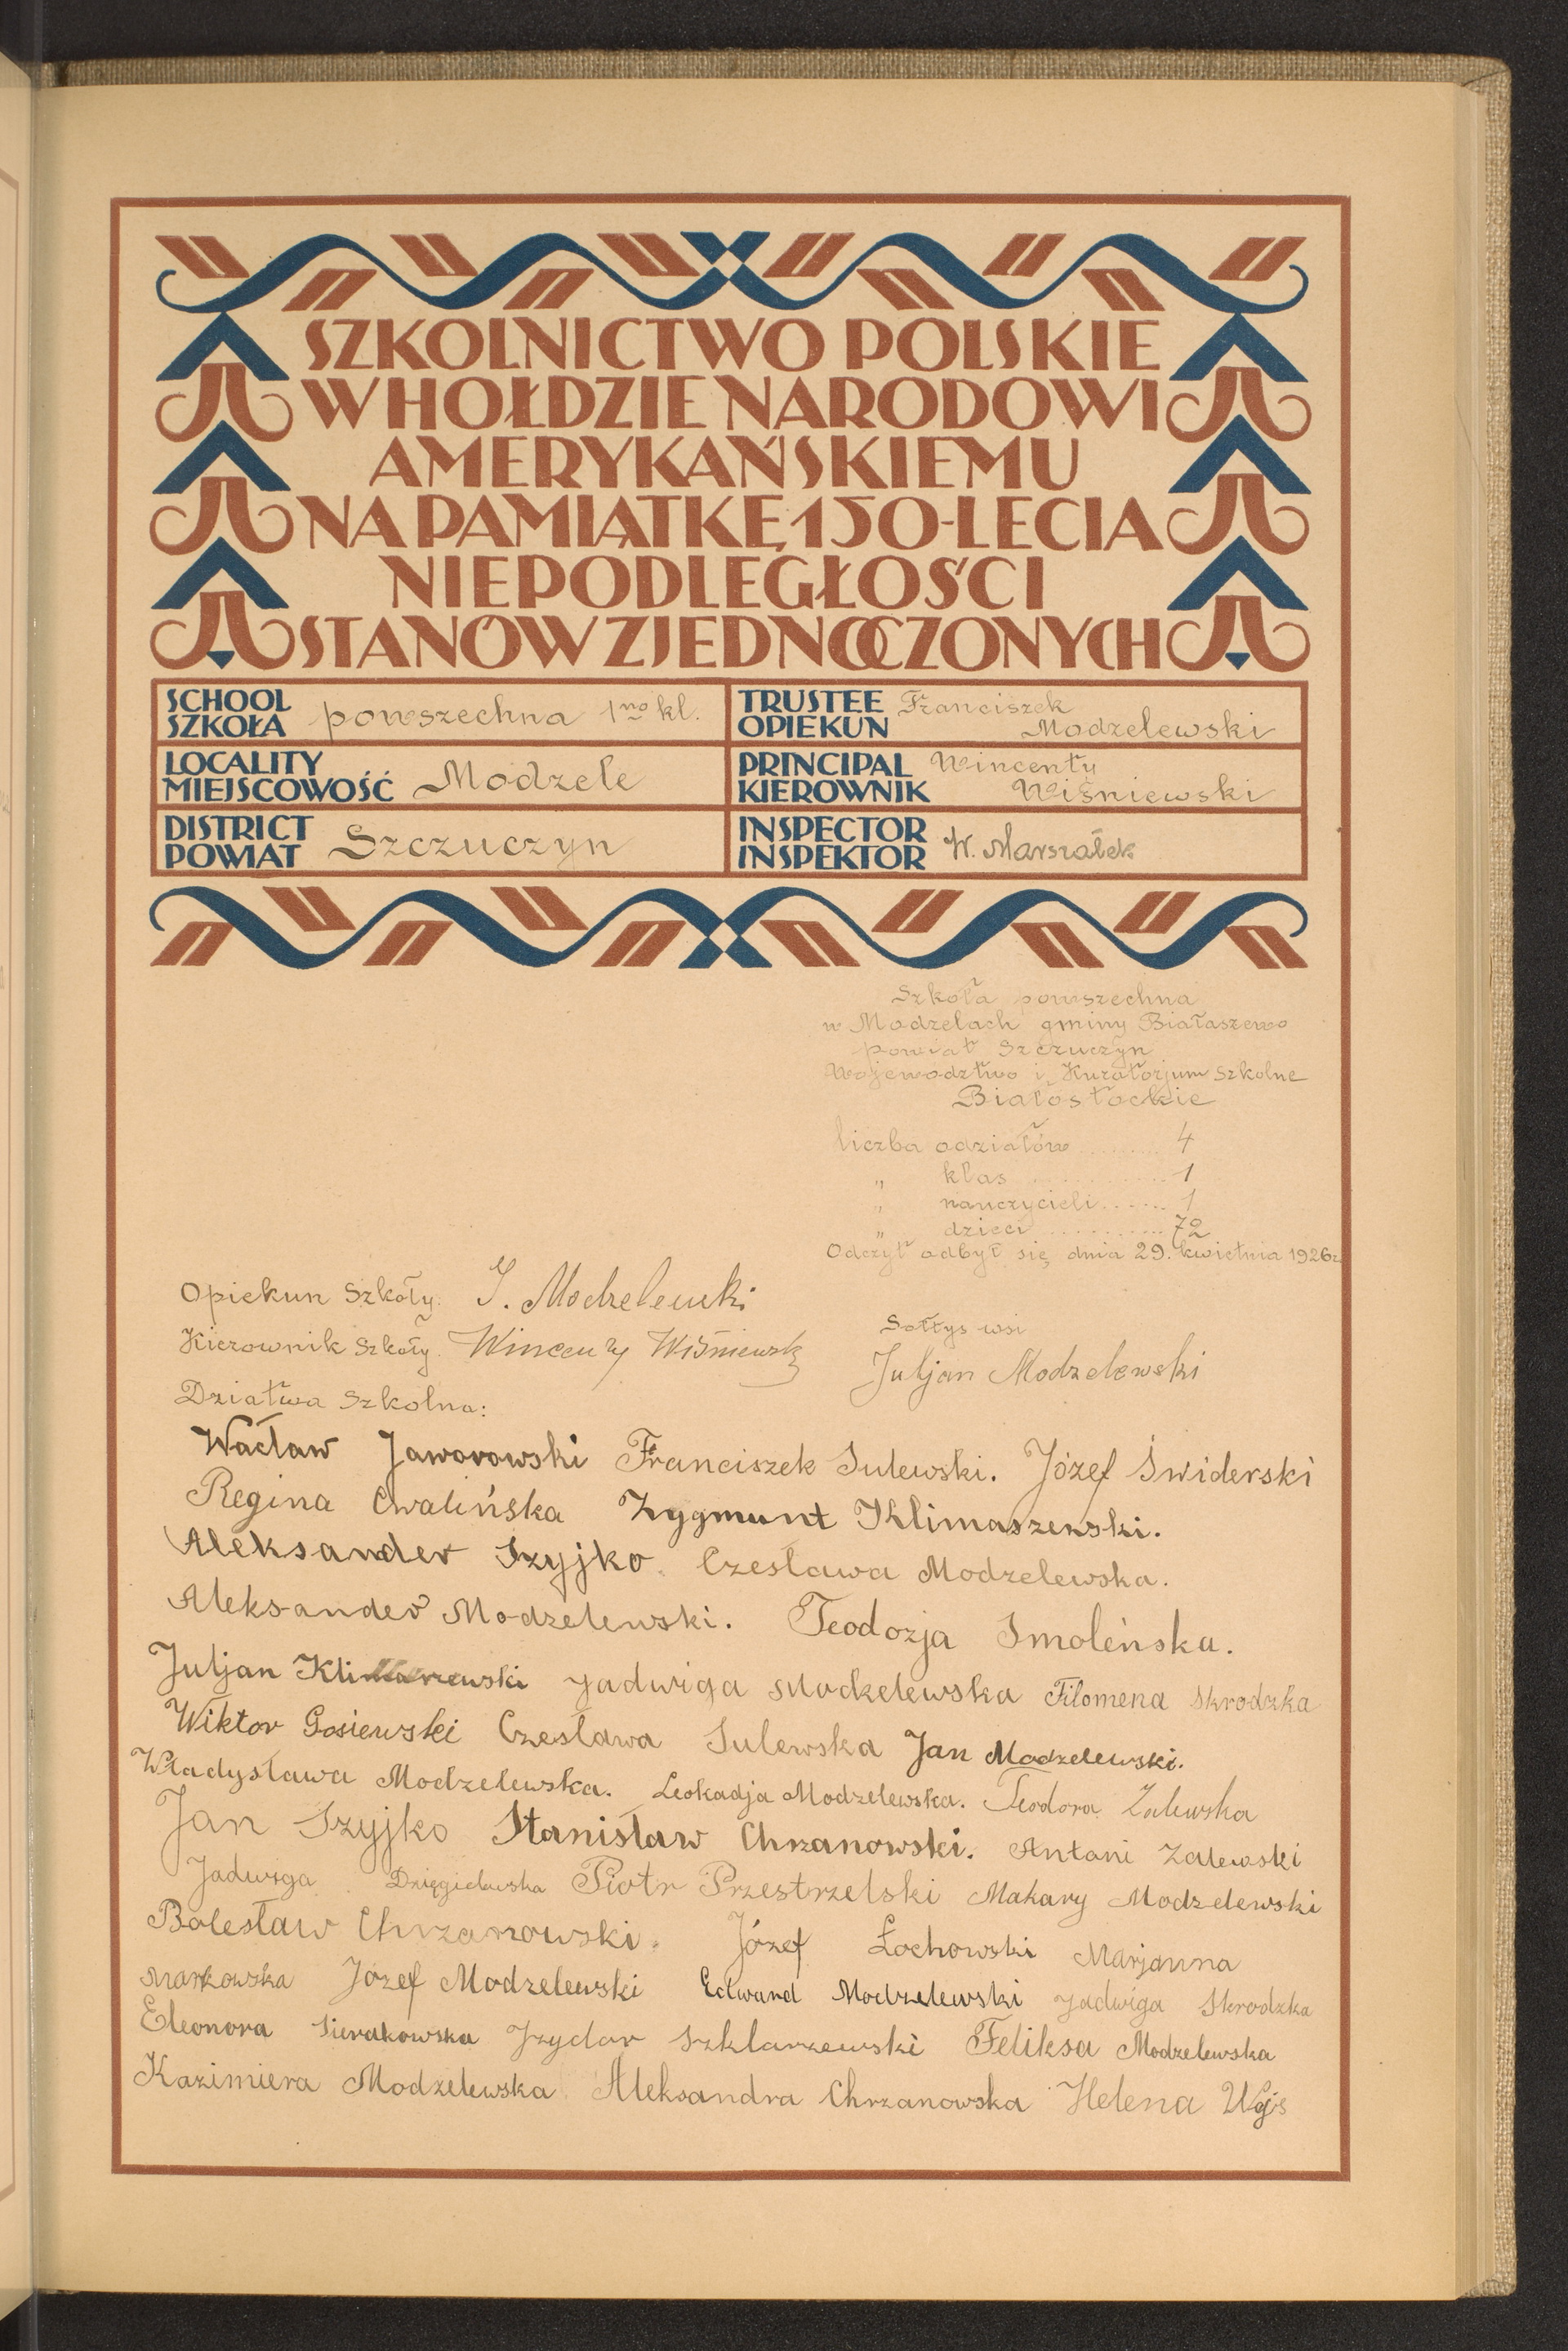 SZKOLNICTWO POLSKIE
W HOŁDZIE NARODOWI
AMERYKAŃSKIEMU
NA PAMIĄTKĘ 150-LECIA
NIEPODLEGŁOŚCI
STANÓW ZJEDNOCZONYCH
SCHOOL
SZKOŁA powszechna 1no kl.
TRUSTEE Franciszek
OPIEKUN Modzelewski
LOCALITY
MIEJSCOWOŚĆ Modzele
PRINCIPAL Wincenty
KIEROWNIK Wiśniewski
DISTRICT
POWIAT Szczuczyn
INSPECTOR
INSPEKTOR W. Marszałek
Szkoła powszechna
w Modzelach gminy Białaszewo
powiat Szczuczyn
Województwo i Kuratorjum Szkolne
Białostockie
liczba odziałów ......... 4
„ klas ............ 1
„ nauczycieli ....... 1
„ dzieci ............ 72
Odczyt odbył się dnia 29. kwietnia 1926r.
Opiekun Szkoły. Modzelewski
Kierownik Szkoły. Wincenty Wiśniewski
Sołtys wsi
Juljan Modzelewski
Dziatwa Szkolna:
Wacław Jaworowski Franciszek Sulewski. Józef Świderski
Regina Cwalińska Zygmunt Klimaszewski.
Aleksander Szyjko. Czesława Modzelewska.
Aleksander Modzelewski. Teodozja Smoleńska.
Juljan Klimaszewski Jadwiga Modzelewska Filomena Skrodzka
Wiktor Gosiewski Czesława Sulewska Jan Modzelewski.
Władysława Modzelewska. Leokadja Modzelewska. Teodora Zalewska
Jan Szyjko Stanisław Chrzanowski. Antoni Zalewski
Jadwiga Dzięgielewska Piotr Przestrzelski Makary Modzelewski
Bolesław Chrzanowski. Józef Łochowski Marjanna
Markowska Józef Modzelewski Edward Modzelewski Jadwiga Skrodzka
Eleonora Sierakowska Izydor Szklarzewski Feliksa Modzelewska
Kazimiera Modzelewska Aleksandra Chrzanowska Helena